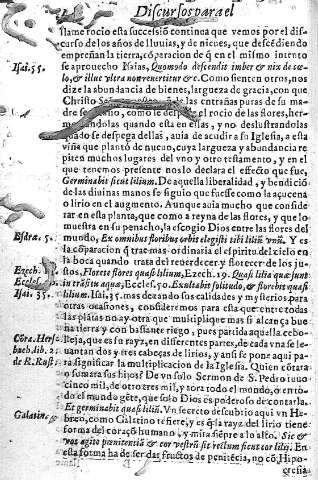 Discursos para el
slame rocio esta successiō continua que vemos por el discurso de los años de lluuias, y de nieues, que descēdiendo
empreñan la tierra, cōparacion de q̄ en el mismo intento
Isai. 55. se aprouecho Esaias, Quomodo descendit imber & nix de cœlo, & illuc vltra non reuertitur &c. Como sienten otros, nos
dize la abundancia de bienes, largueza de gracia, con que
Christo de las entrañas puras de su madre como el rocio de las flores, hermoseandolas quando esta en ellas, y no deslustrandolas
quādo se despega dellas, auia de acudir a su Iglesia, a esta
viña que plantò de nueuo, cuya largueza y abundancia repiten muchos lugares del vno y otro testamento, y en el
que tenemos presente nos lo declara el effecto que fue,
Germinabit sicut lilium. De aquella liberalidad, y bendiciō
de las diuinas manos se siguio que fuesse como la açucena
o lirio en el augmento. Aunque auia mucho que considerar en esta planta, que como a reyna de las flores, y que lo
muestra en su penacho, la escogio Dios entre las flores del
Esdræ. 5. mundo, Ex omnibus floribus orbis elegisti tibi lilium vnū. Y es
la cōparacion q̄ trae mas ordinaria el espiritu del cielo en
la boca quando trata del reuerdecer y florecer de los justos,
Ezech. Florete flores quasi lilium, Ezech. 19. Quasi lilia quæ sunt
Eccles. in trāsitu aquæ, Eccles. 50. Exultabit solitudo, & florebit quasi
Isai. 35. lilium. Isai. 35. mas dexando sus calidades y mysterios para
otras ocasiones, consideremos para esta que entre todas
las plātas no ay otra que multiplique mas si alcança buena tierra y con bastante riego, pues partida aquella cebolleja, que es su rayz, en differentes partes, de cada vna se leuantan dos y tres cabeças de lirios, y ansi se pone aqui para significar la multiplicacion de la Iglesia. Quien cōtara
de R. Rust. o sumara sus hijos? De vn solo Sermon de S. Pedro tuuo
cinco mil, de otro tres mil, y toda todo el mundo, o todo
do el mundo gēte, que solo Dios es poderoso de contarla.
Et germinabit quasi liliū. Vn secreto descubrio aqui vn Hebreo,
Galatino como Galatino refiere, y es q̄ la rayz del lirio tiene
forma del coraçō humano, y mira siēpre a lo alto. Sic &
vos agite pœnitentiā & cor vestrū sit rectum sicut cor lilij. En
esta forma ha de ser dar fructos de penitēcia, no cō Hipocresia